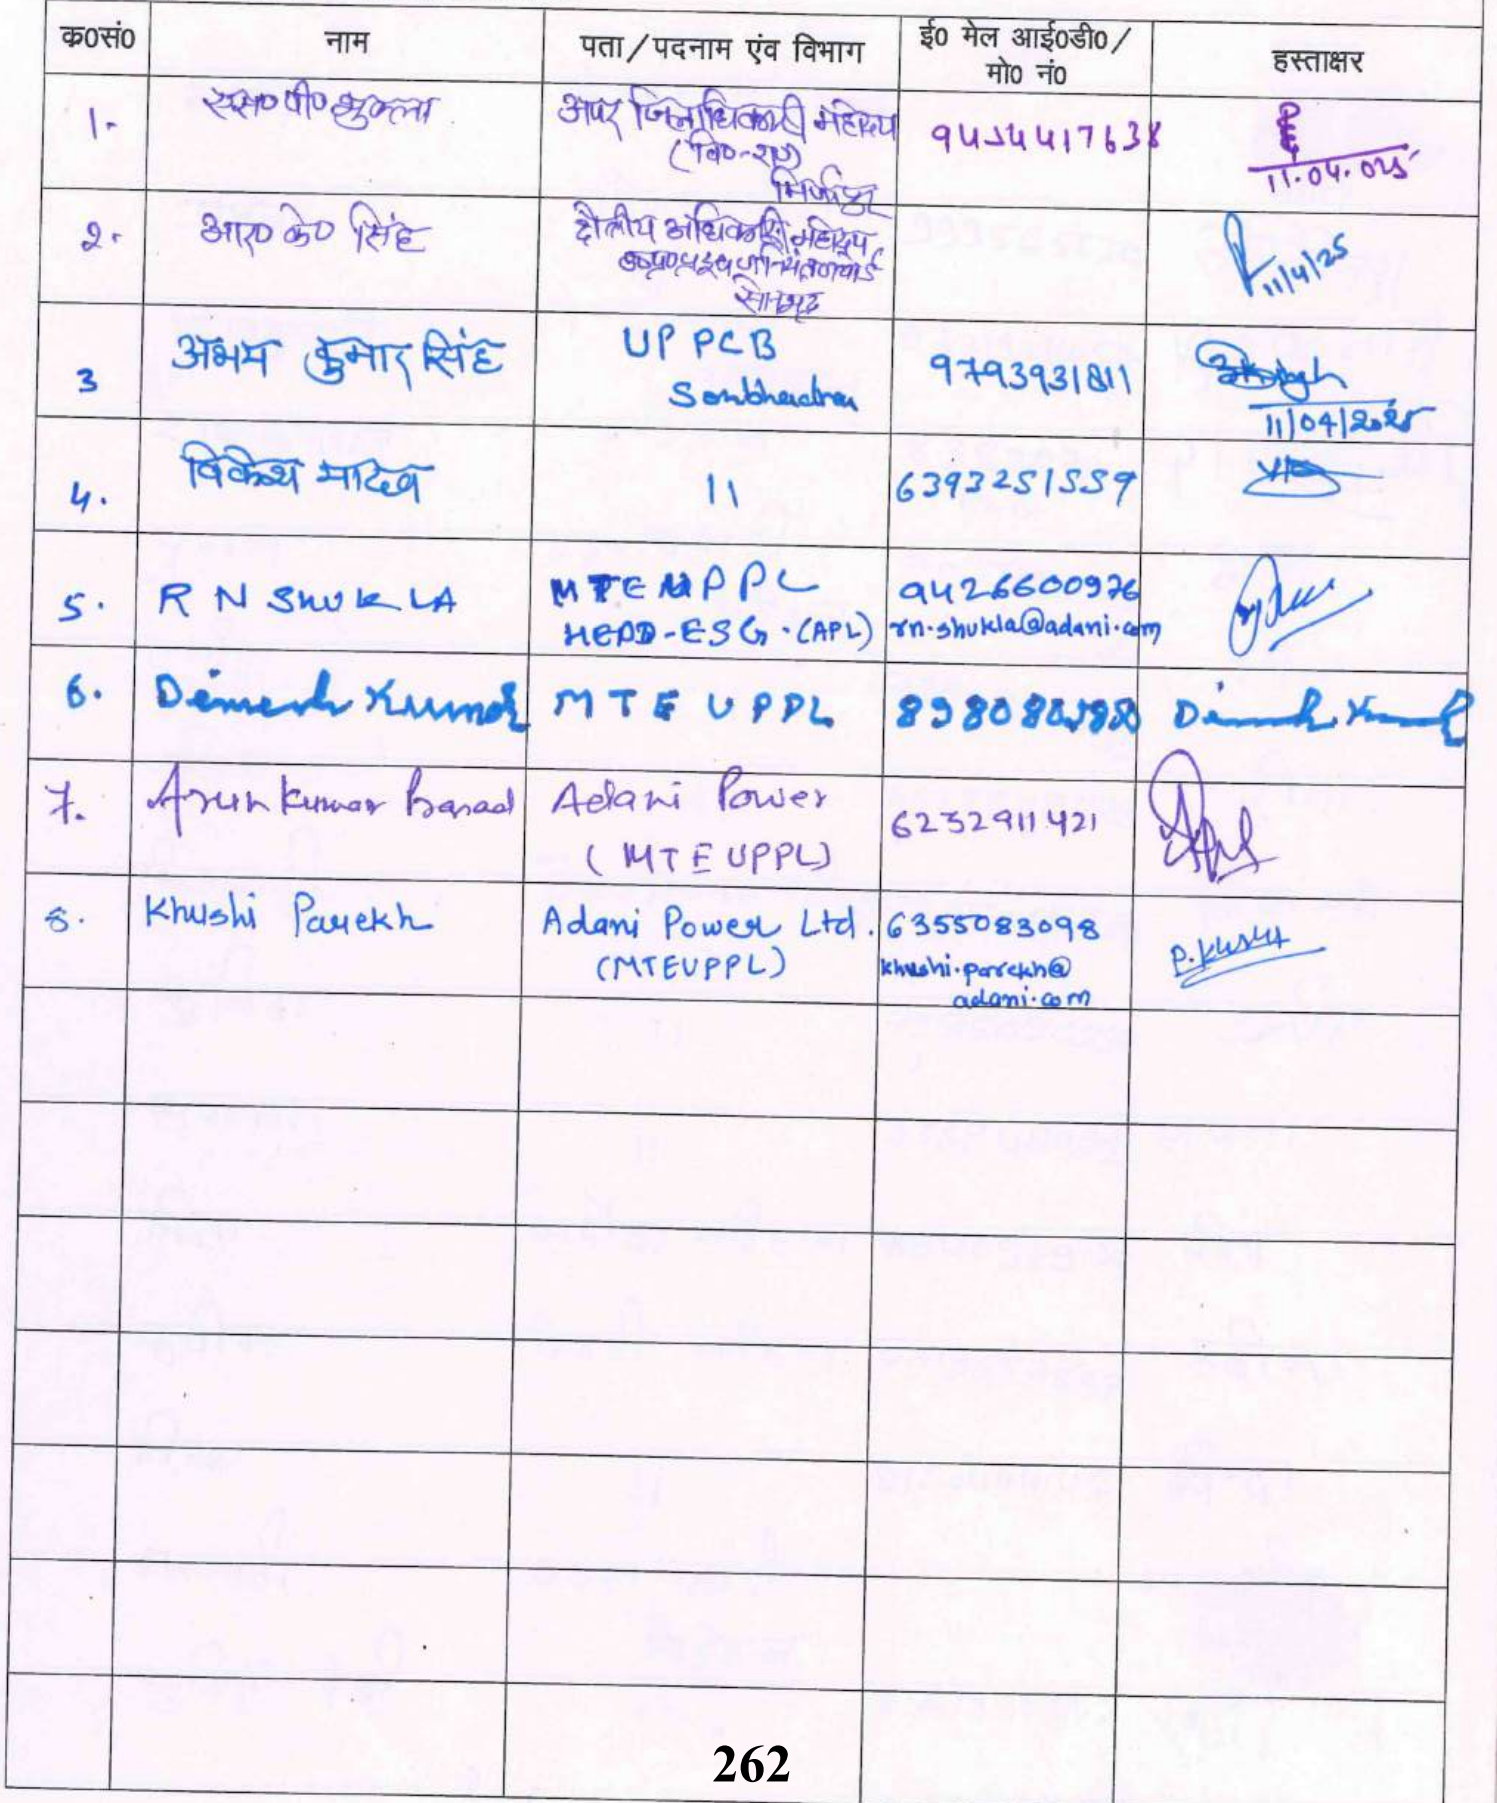 क0सं0
नाम
पता/पदनाम एंव विभाग
ई0 मेल आई0डी0/
मो0 नं0
हस्ताक्षर
1-
एस0 पी0 शुक्ला
अपर जिलाधिकारी महोदय
(वि0-रा0)
मिर्जापुर
9454417638
11.04.025
2.
आर0 के0 सिंह
क्षेत्रीय अधिकारी महोदय
सोनभद्र
11/4/25
3
अभय कुमार सिंह
UPPCB
Sonbhadra
9793931811
11/04/2025
4.
विकेश यादव
11
6393251559
5.
R N SHUKLA
MTEUPPL
HEAD-ESG.(APL)
9426600976
rn.shukla@adani.com
6.
Dimesh Kumar
MTEUPPL
Dimesh Kumar
7.
Arun Kumar Prasad
Adani Power
(MTEUPPL)
6232911421
8.
Khushi Parekh
Adani Power Ltd.
(MTEUPPL)
6355083098
khushi.parekh@
adani.com
P. Khushi
262